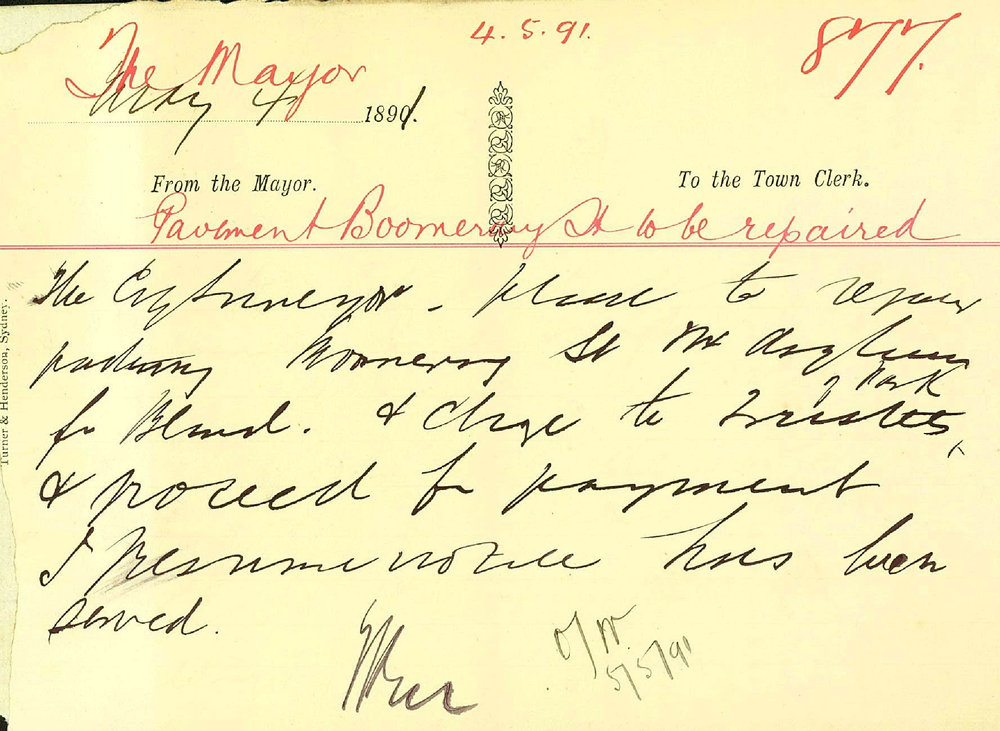 4.5.91.
877.
The Mayor
May 4 1891.
From the Mayor.
To the Town Clerk.
Pavement Boomerang St to be repaired
The City Surveyor - please to repair
pathway Boomerang St Nr Asylum
for Blind. & charge to Trustees of Park
& proceed for payment
I presume notice has been
served.
5/5/91
Turner & Henderson, Sydney.